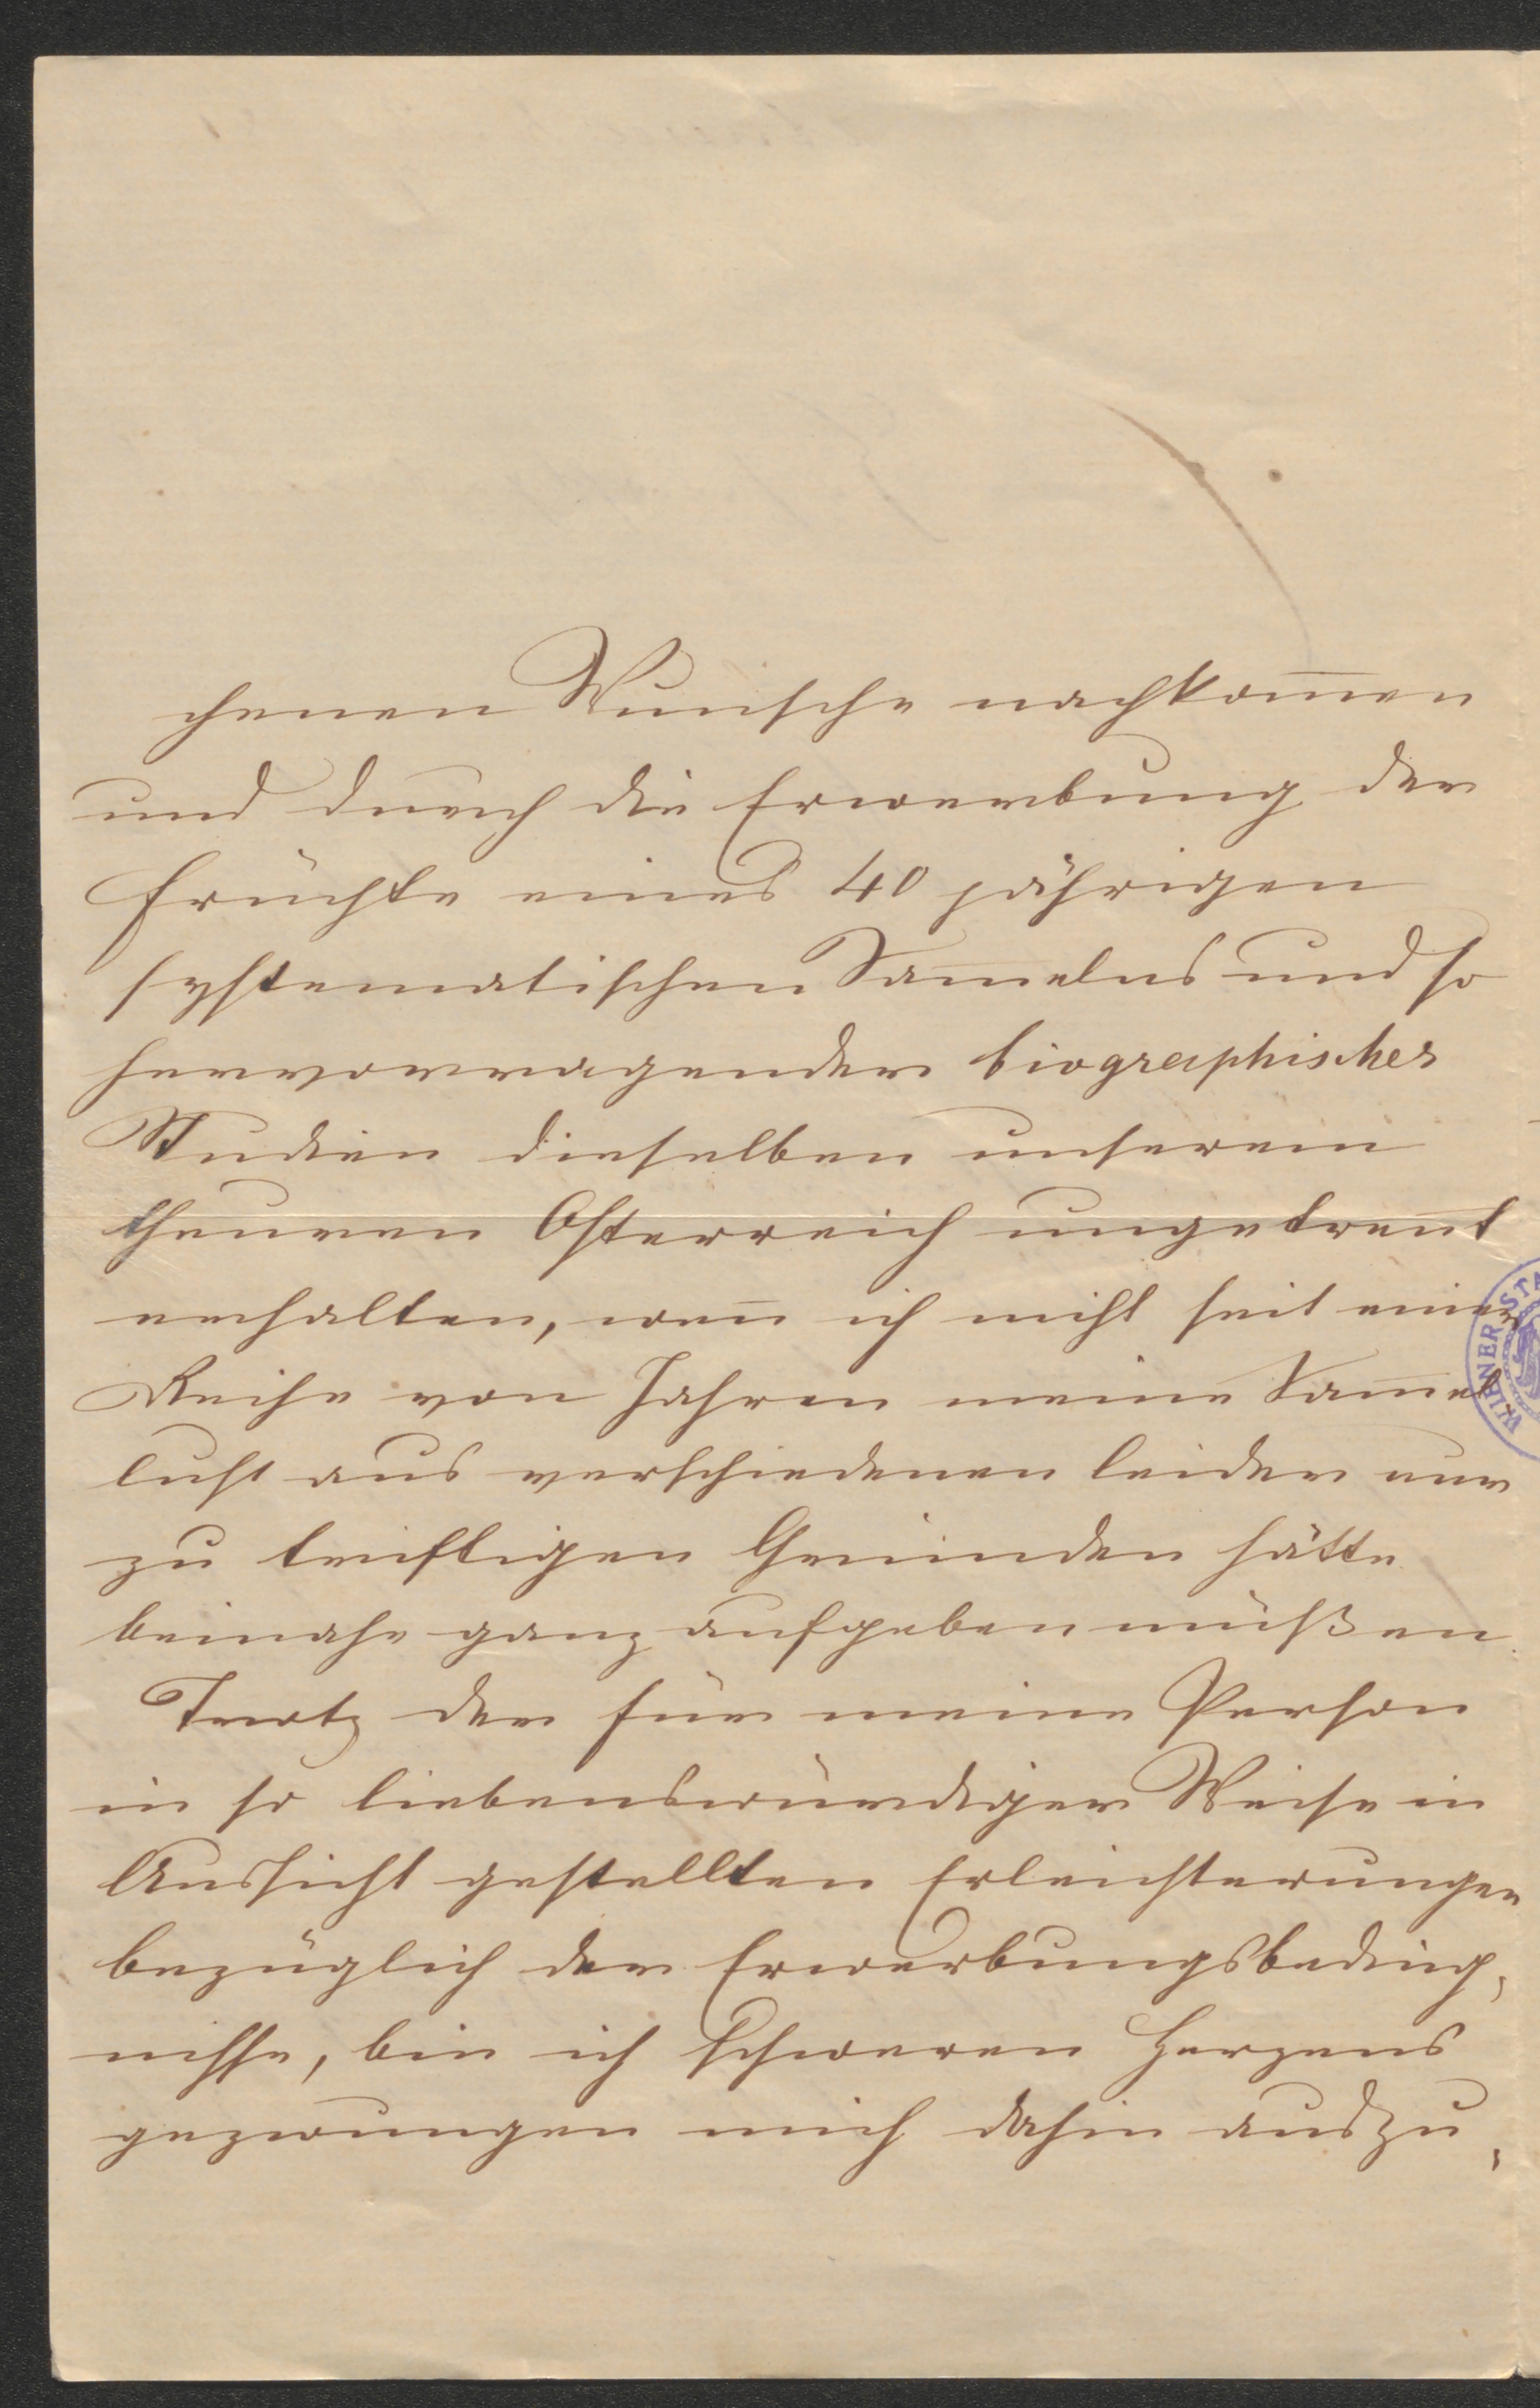 chenen Wunsche nachkom̄en
und durch die Erwerbung der
Früchte eines 40 jährigen
systematischen Sam̄elns und so
hervorragender biographischer
Studien dieselben unserem
theuren Österreich ungetren̄t
erhalten, wen̄ ich nicht seit einer
Reihe von Jahren meine Sam̄el
lust aus verschiedenen leider nur
zu triftigen Gründen hätte
beinahe ganz aufgeben müßen.
Trotz der für meine Person
in so liebenswürdiger Weise in
Aussicht gestellten Erleichterungen
bezüglich der Erwerbungsbeding,
nisse, bin ich schweren Herzens
gezwungen mich dahin auszu,
WIENER STA